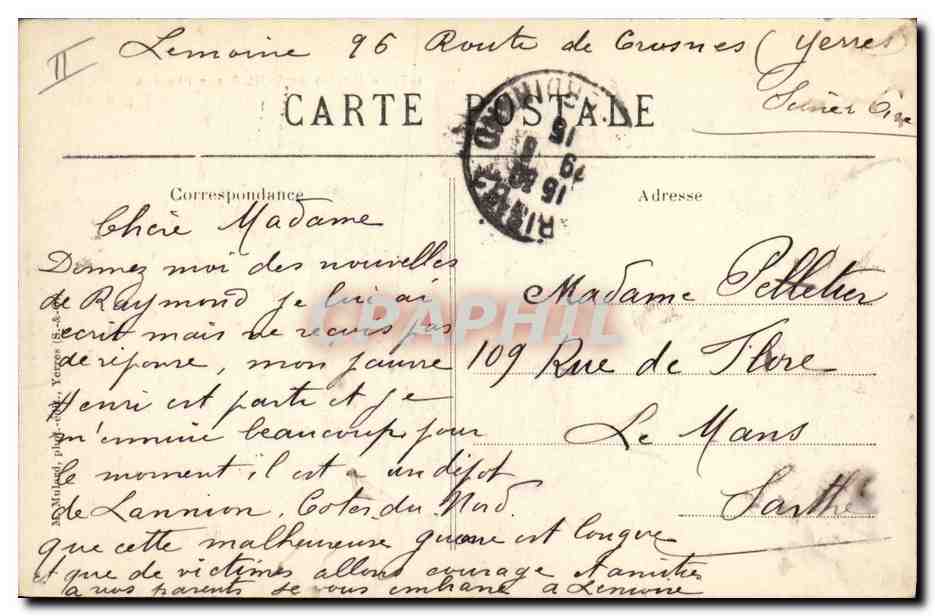 II
Lemoine 96 Route de Crosnes (Yerres
Seine et Oise
CARTE POSTALE
Correspondance
Adresse
Chère Madame
Donnez moi des nouvelles
de Raymond je lui ai
ecrit mais ne recois pas
de réponse, mon pauvre
Henri est partit et je
m'ennuie beaucoup, pour
le moment il est a un dépot
de Lannion, Cotes du Nord.
que cette malheureuse guerre est longue
et que de victimes allons courage et amitiés
a vos parents je vous embrasse A Lemoine
Madame Pelletier
109 Rue de Flore
Le Mans
Sarthe
M. Mulard, phot.-édit., Yerres (S.-&-O.)
CPAPHIL